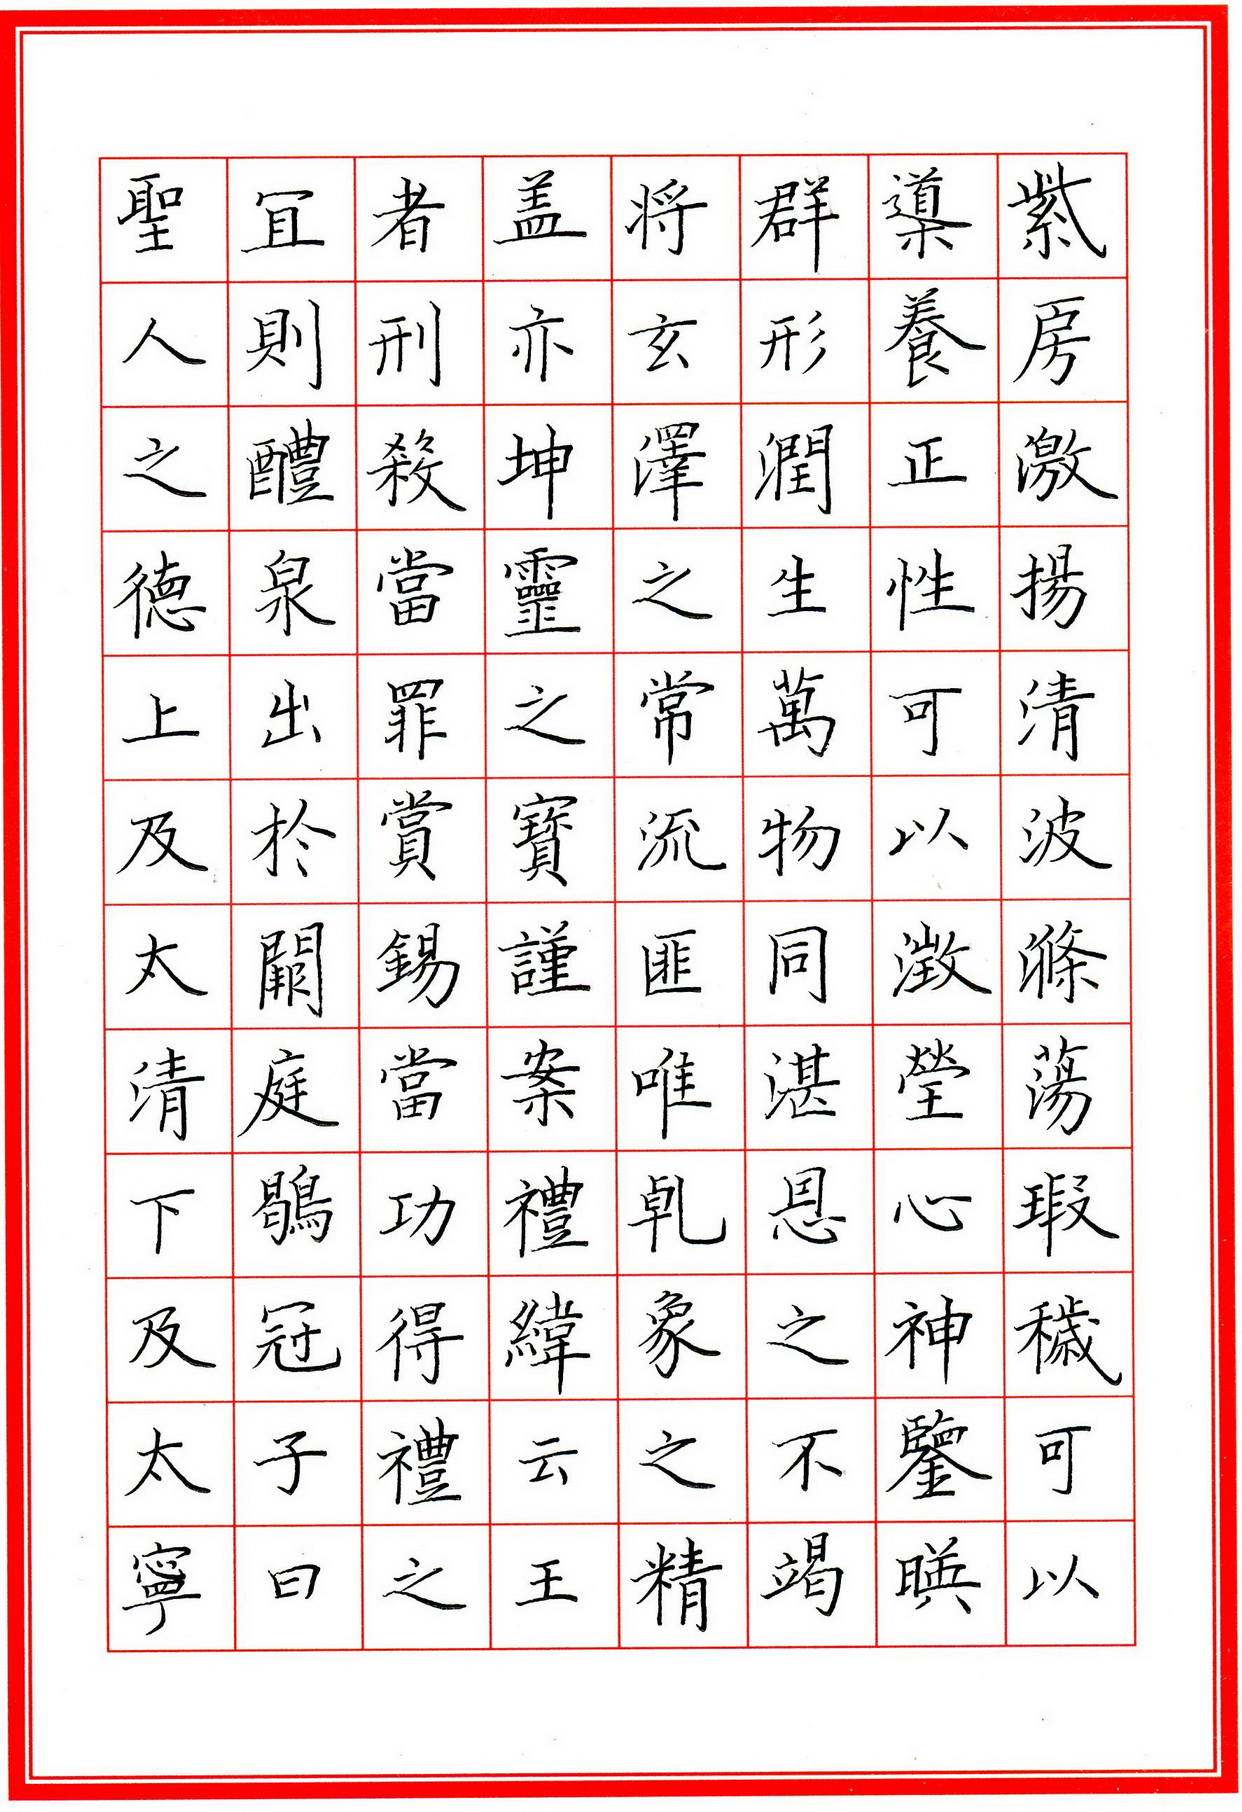 紫房激揚清波滌蕩瑕穢可以
導養正性可以澂瑩心神鑒暎
群形潤生萬物同湛恩之不竭
将玄澤之常流匪唯乹象之精
盖亦坤靈之寶謹案禮緯云王
者刑殺當罪賞錫當功得禮之
冝則醴泉出於闕庭鶡冠子曰
聖人之德上及太清下及太寧